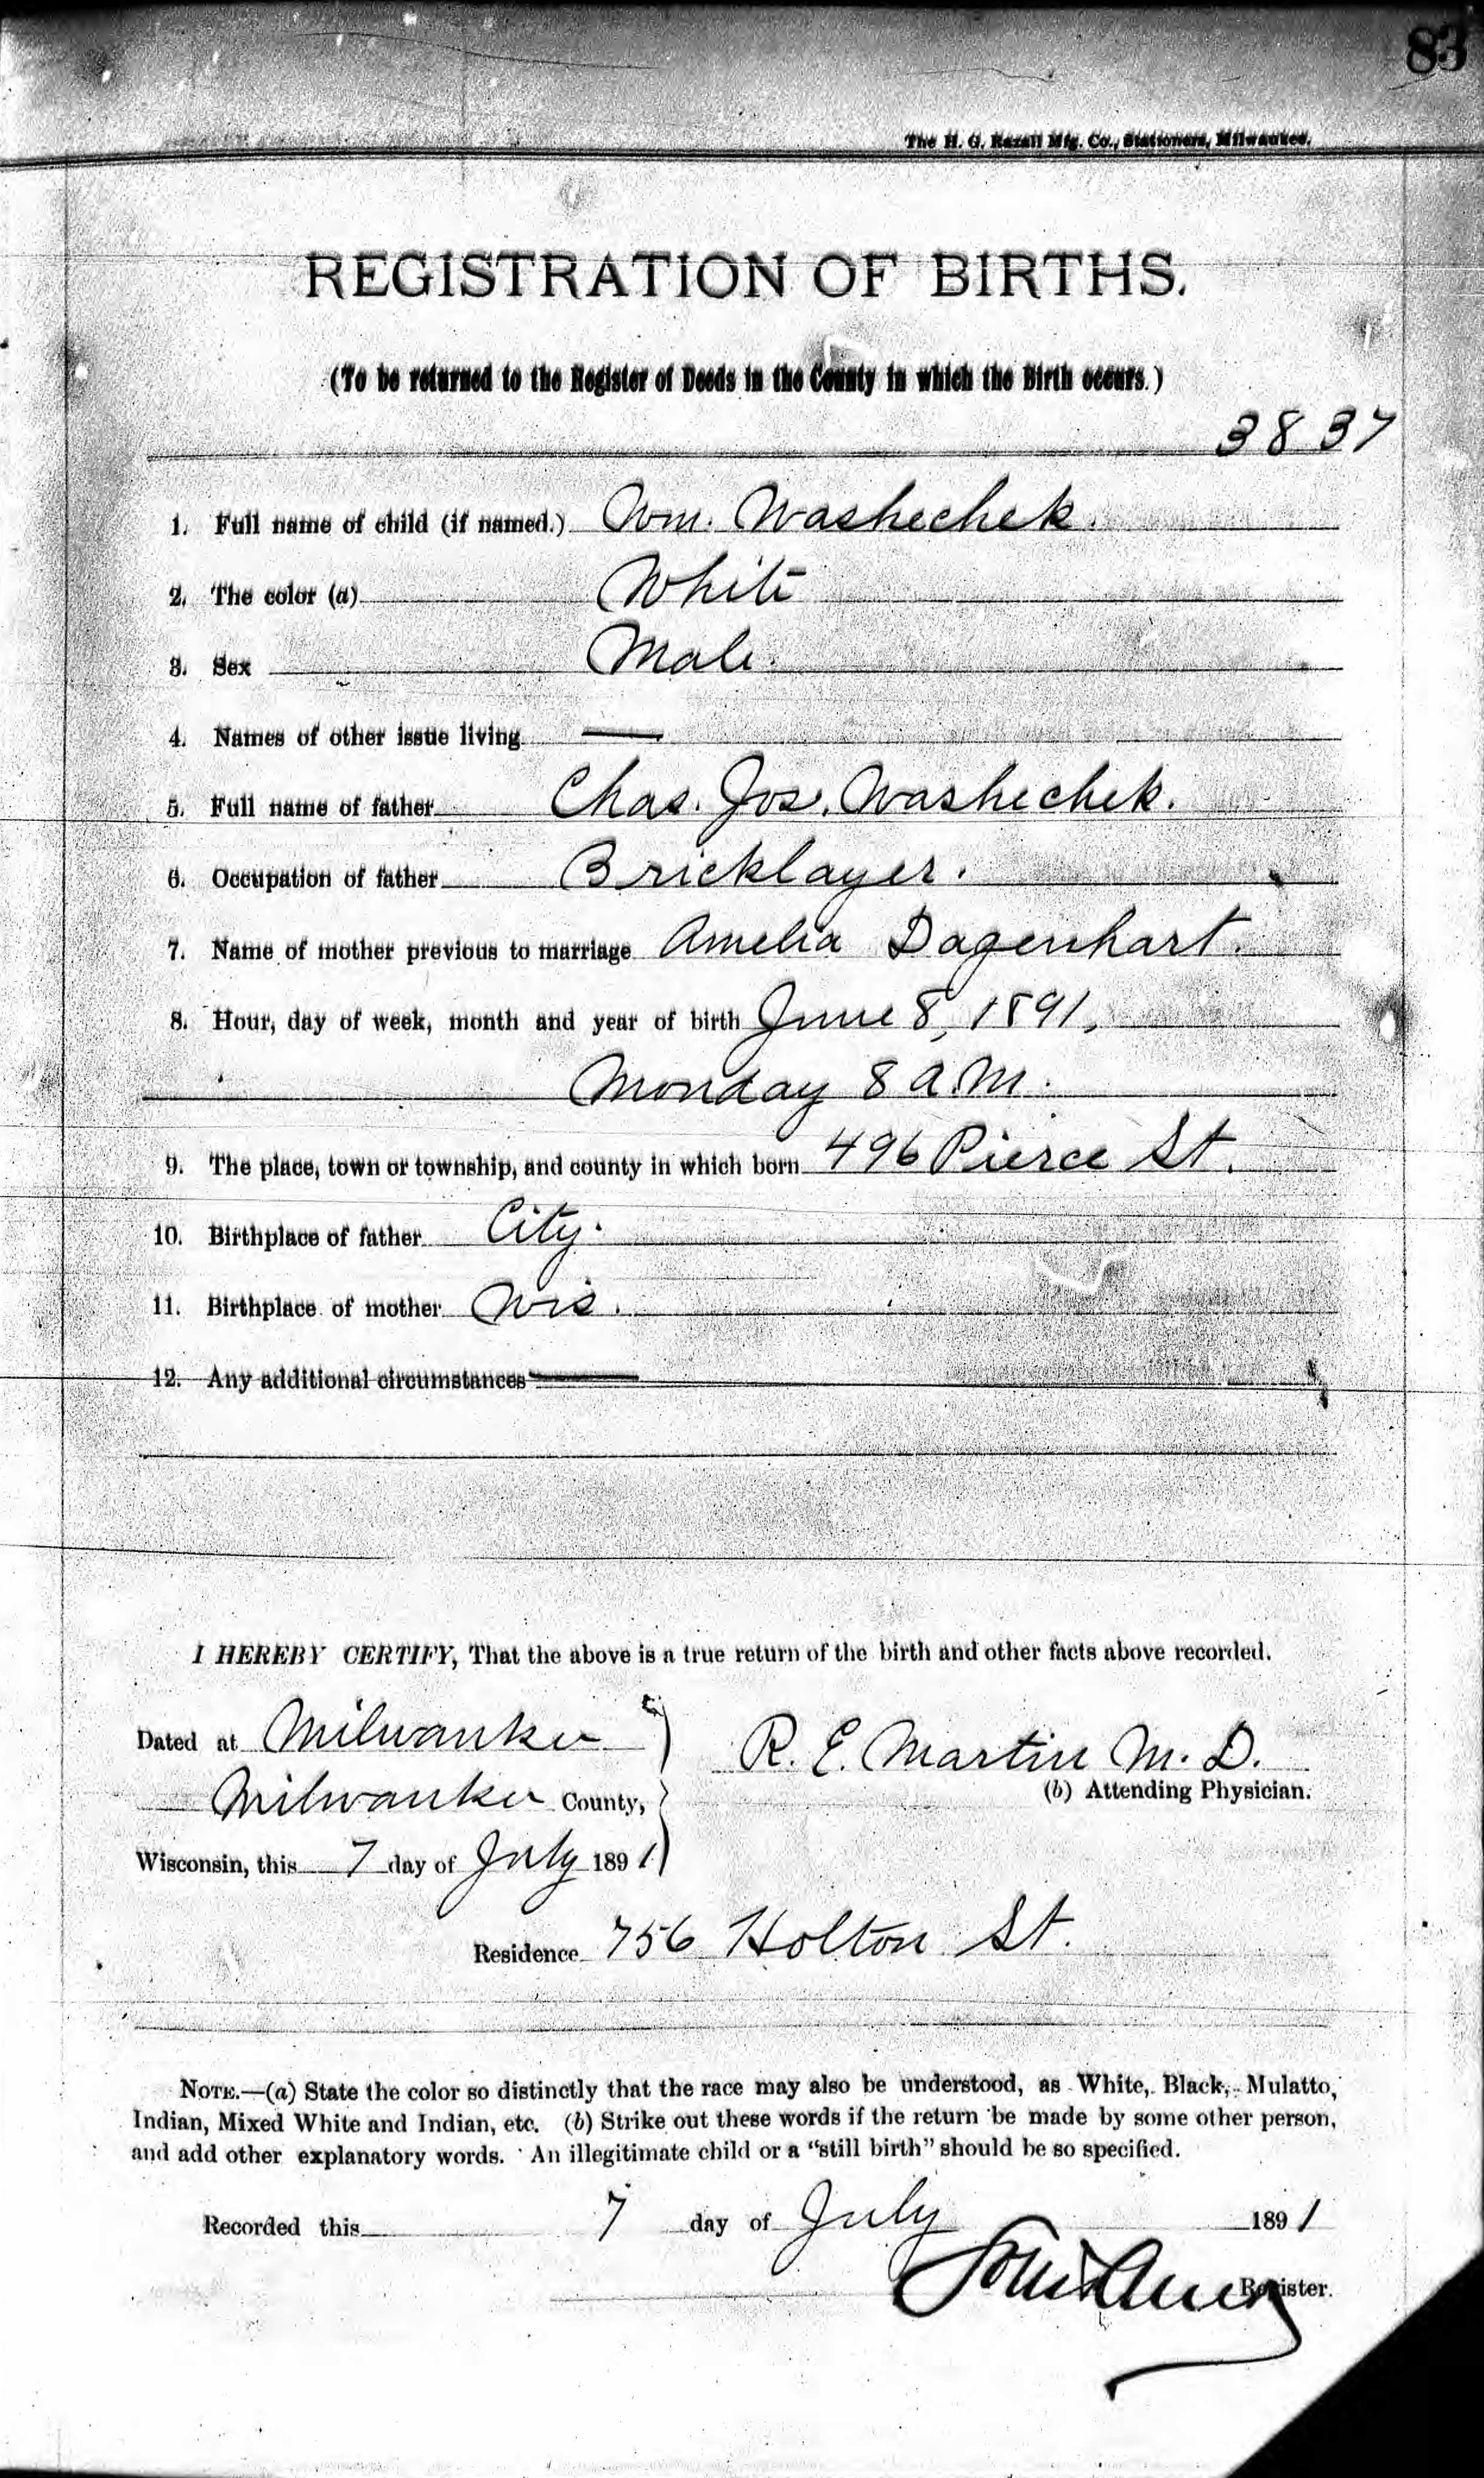 83
The H. G. Razall Mfg. Co., Stationers, Milwaukee.
REGISTRATION OF BIRTHS.
(To be returned to the Register of Deeds in the County in which the Birth occurs.)
3837
1. Full name of child (if named.) Wm. Washechek.
2. The color (a) White
3. Sex Male.
4. Names of other issue living —
5. Full name of father Chas. Jos. Washechek.
6. Occupation of father Bricklayer.
7. Name of mother previous to marriage Amelia Dagenhart.
8. Hour, day of week, month and year of birth June 8, 1891,
Monday 8 a.m.
9. The place, town or township, and county in which born 496 Pierce St.
10. Birthplace of father City.
11. Birthplace of mother Wis.
12. Any additional circumstances —
I HEREBY CERTIFY, That the above is a true return of the birth and other facts above recorded.
Dated at Milwaukee
R. E. Martin M. D.
Milwaukee County,
(b) Attending Physician.
Wisconsin, this 7 day of July 1891
Residence 756 Holton St.
NOTE.—(a) State the color so distinctly that the race may also be understood, as White, Black, Mulatto,
Indian, Mixed White and Indian, etc. (b) Strike out these words if the return be made by some other person,
and add other explanatory words. An illegitimate child or a "still birth" should be so specified.
Recorded this 7 day of July 1891
Register.